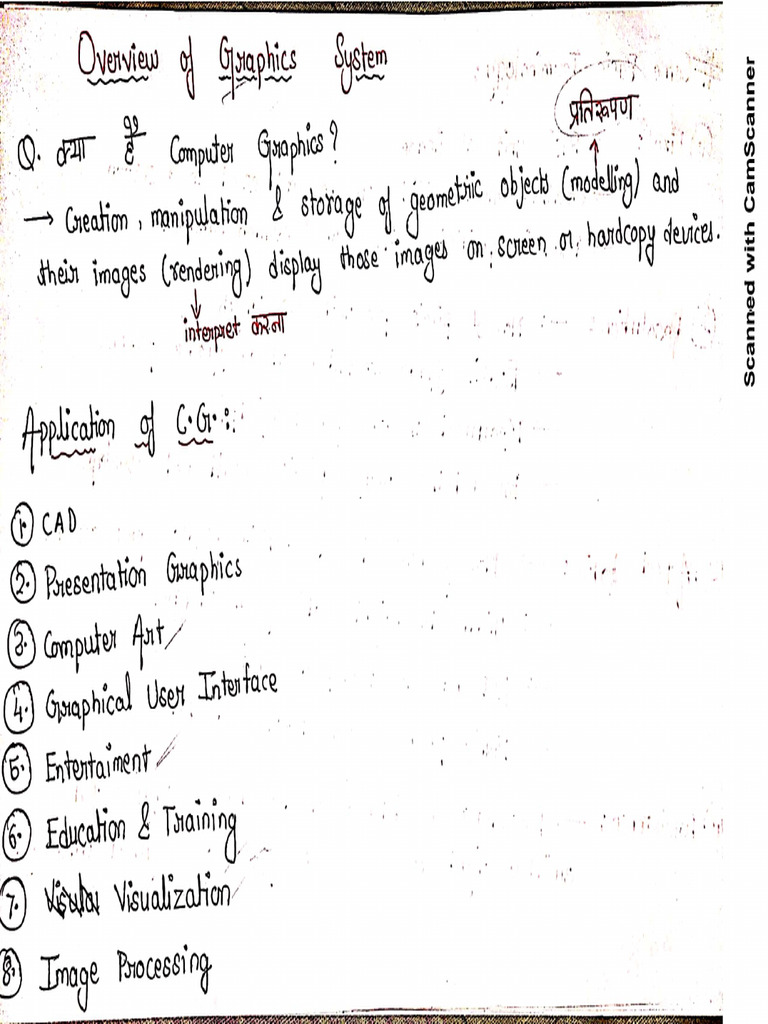 Overview of Graphics System
प्रतिरूपण
Q. क्या है Computer Graphics?
→ Creation, manipulation & storage of geometric objects (modelling) and
their images (rendering) display those images on screen or hardcopy devices.
interpret करना
Application of C.G.:
1. CAD
2. Presentation Graphics
3. Computer Art
4. Graphical User Interface
5. Entertaiment
6. Education & Training
7. Visualization
8. Image Processing
Scanned with CamScanner